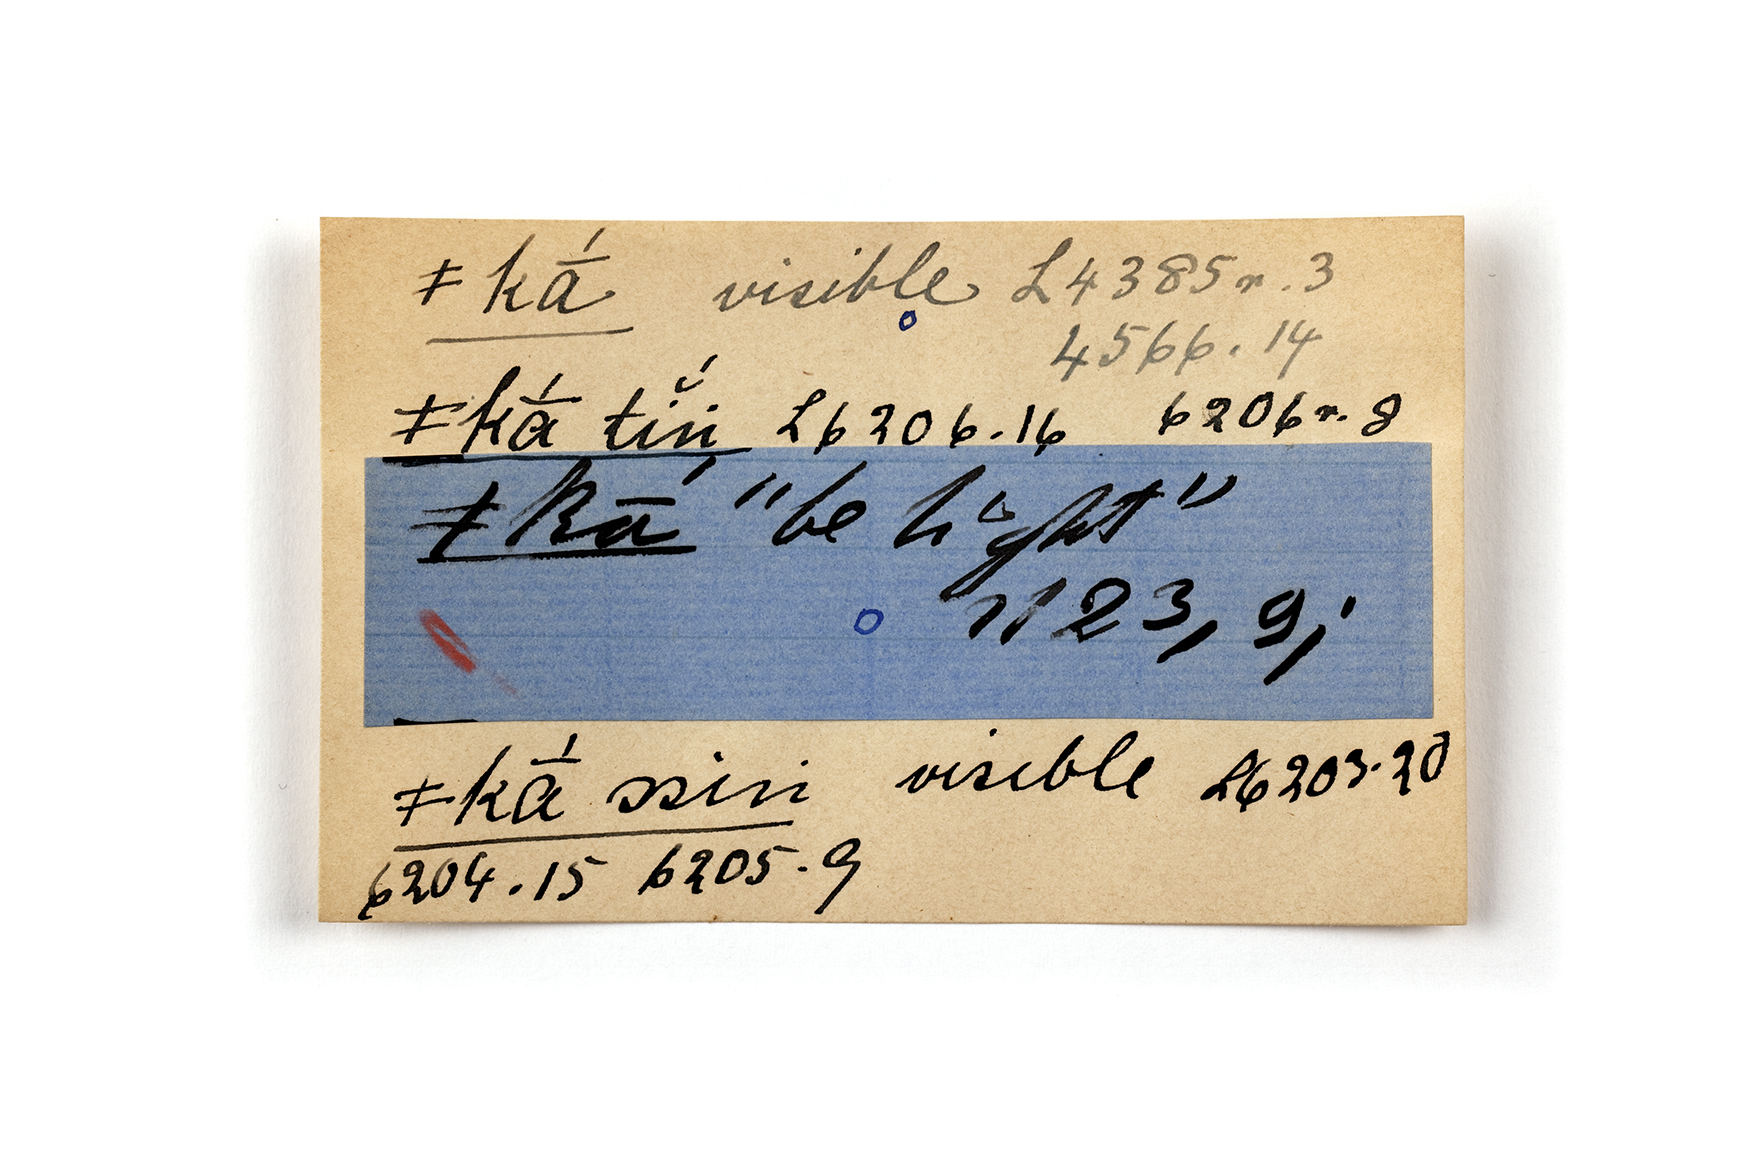 ǂkā́ visible L4385r.3
4566.14
ǂkā́ tĭ́ñ L6206.16 6206r.8
ǂkā́ "be light"
N23, 9,'
ǂkā́ ssiñ visible L6203.20
6204.15 6205.9